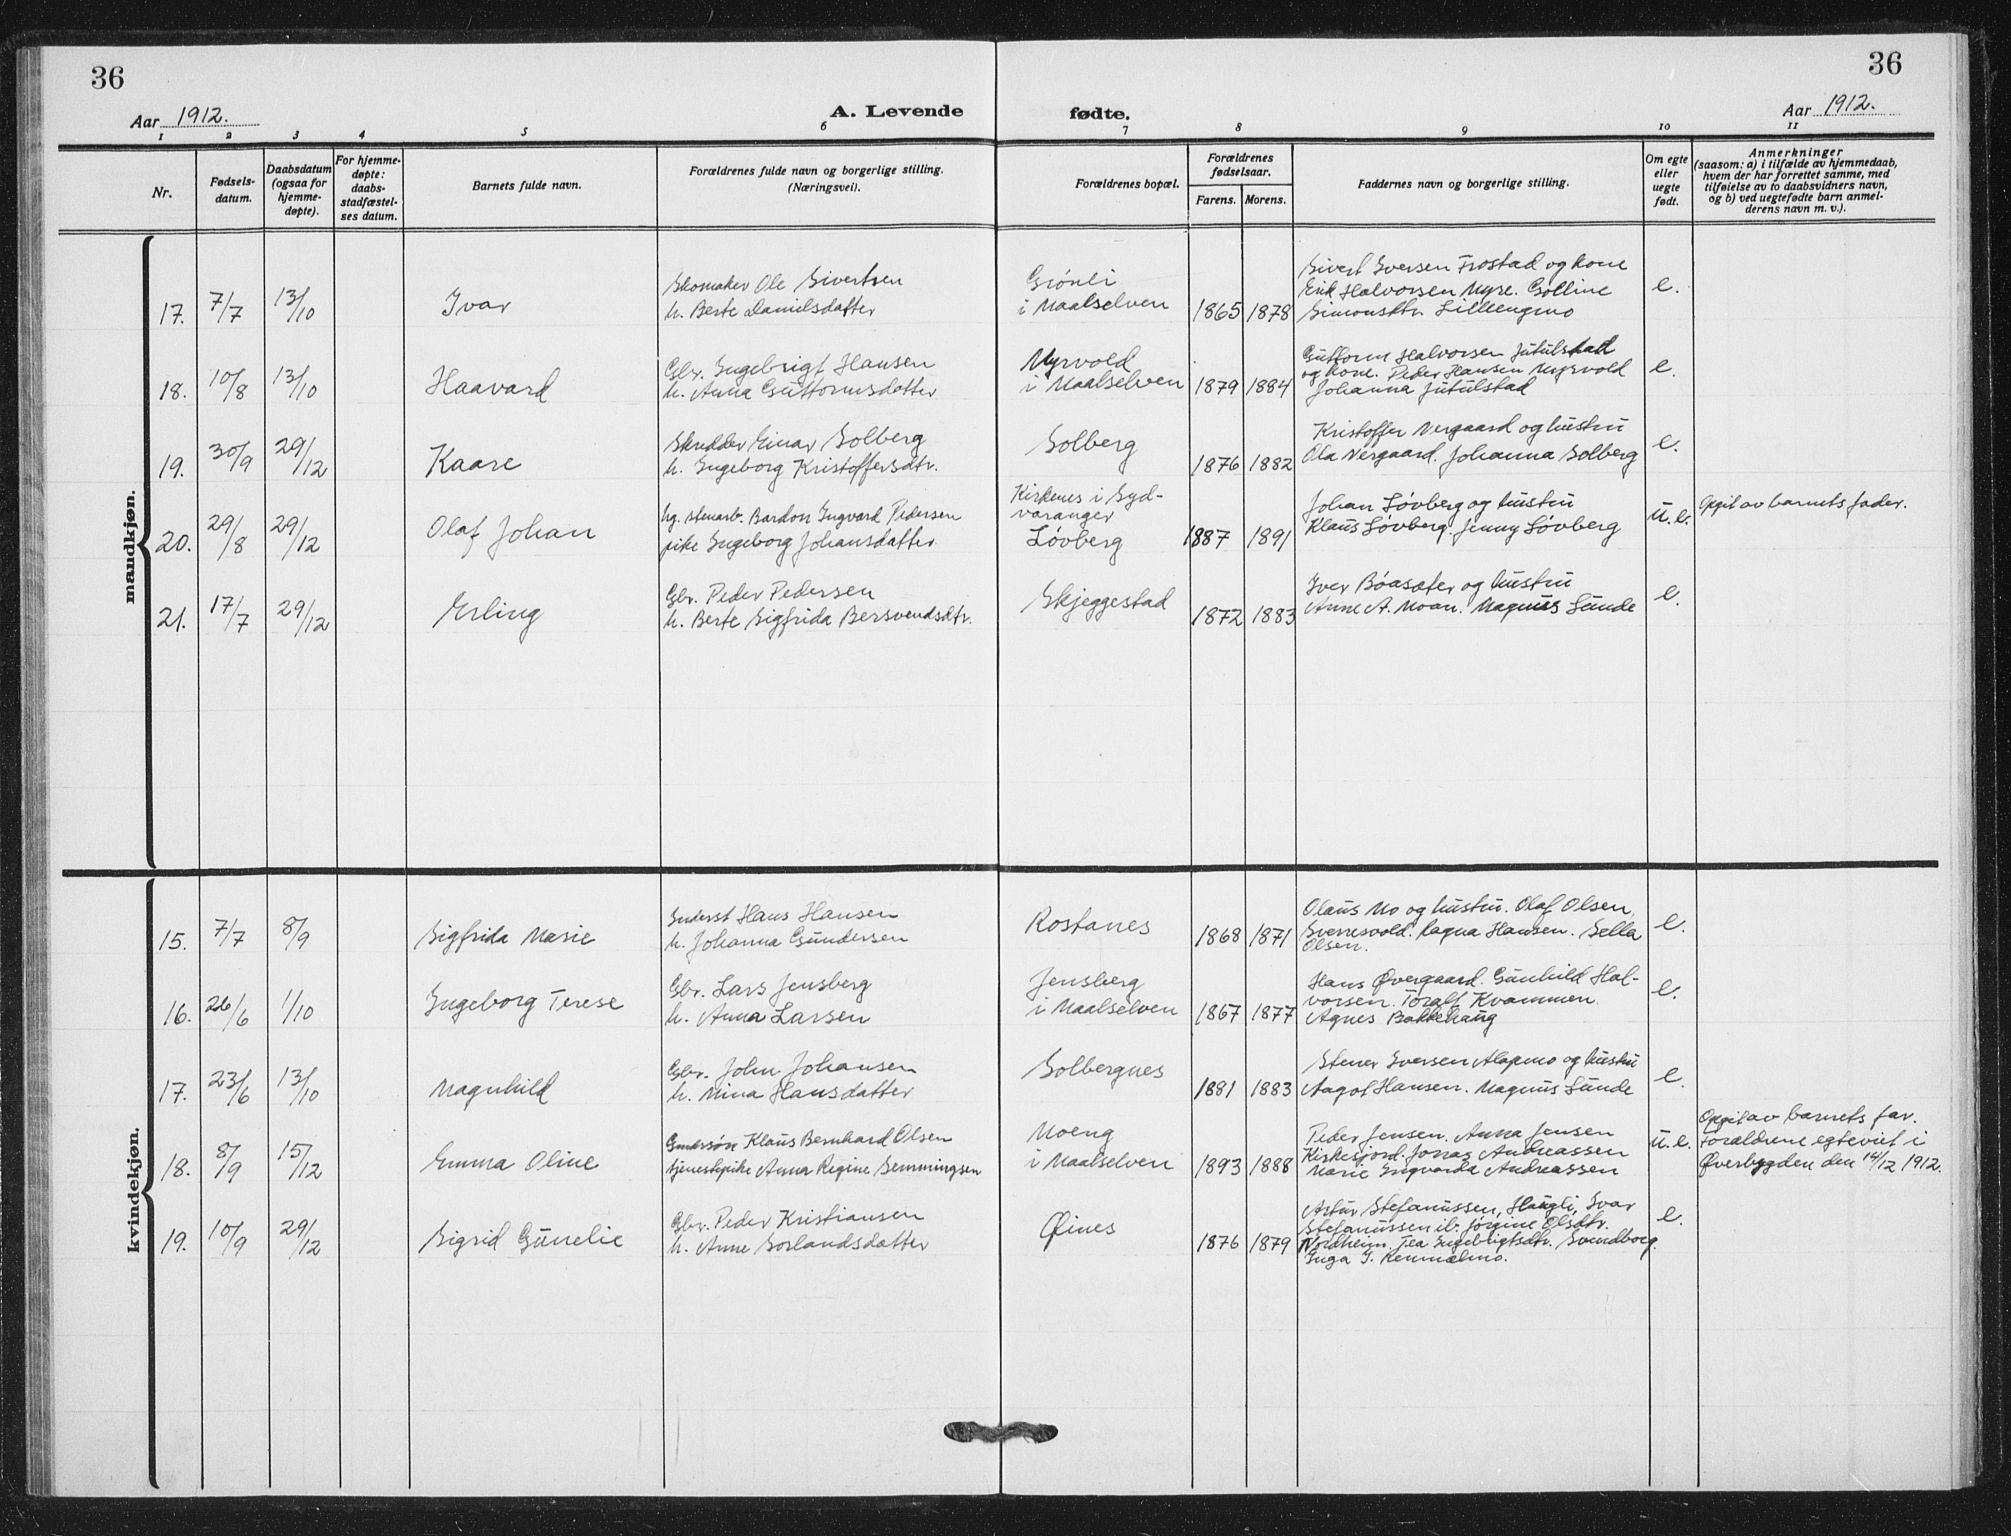 36
36
Aar 1912.
A. Levende
fødte.
Aar 1912.
1 2 3 4 5 6 7 8 9 10 11
Nr.
Fødsels-
datum.
Daabsdatum
(ogsaa for
hjemme-
døpte).
For hjemme-
døpte:
daabs-
stadfæstel-
ses datum.
Barnets fulde navn.
Forældrenes fulde navn og borgerlige stilling.
(Næringsvei).
Forældrenes bopæl.
Forældrenes
fødselsaar.
Farens. Morens.
Faddernes navn og borgerlige stilling.
Om egte
eller
uegte
født.
Anmerkninger
(saasom: a) i tilfælde av hjemmedaab,
hvem der har forrettet samme, med
tilføielse av to daabsvidners navn,
og b) ved uegtefødte barn anmel-
derens navn m. v.).
mandkjøn.
17. 7/7 13/10 Ivar
Skomaker Ole Sivertsen
h. Berte Danielsdatter
Grönli
i Maalselven
1865 1878
Sivert Iversen Frostad og kone
Erik Halvorsen Myre. Golline
Simonsdtr. Lilleengmo
e.
18. 10/8 13/10 Haavard
Gbr. Ingebrigt Hansen
h. Anna Guttormsdatter
Myrvold
i Maalselven
1879 1884
Guttorm Halvorsen Jutulstad
og kone. Peder Hansen Myrvold
Johanna Jutulstad
e.
19. 30/9 29/12 Kaare
Skredder Einar Solberg
h. Ingeborg Kristoffersdtr.
Solberg
1876 1882
Kristoffer Nergaard og hustru
Ola Nergaard. Johanna Solberg
e.
20. 29/8 29/12 Olaf Johan
ug. stenarb. Bardon Ingvard Pedersen
pike Ingeborg Johansdatter
Kirkenes i Syd-
varanger
Løvberg
1887 1891
Johan Løvberg og hustru
Klaus Løvberg. Jenny Løvberg
u.e.
Opgit av barnets fader.
21. 17/7 29/12 Erling
Gbr. Peder Pedersen
h. Berte Sigfrida Bersvendsdtr.
Skjeggestad
1872 1883
Iver Bøasæter og hustru
Anne A. Moan. Magnus Sunde
e.
kvindekjøn.
15. 7/7 8/9 Sigfrida Marie
Inderst Hans Hansen
h. Johanna Gundersen
Rostanes
1868 1871
Olaus Mo og hustru. Olaf Olsen,
Sverresvold. Ragna Hansen. Sella
Olsen.
e.
16. 26/6 1/10 Ingeborg Terese
Gbr. Lars Jensberg
h. Anna Larsen
Jensberg
i Maalselven
1867 1877
Hans Øvergaard. Gunhild Hal-
vorsen. Toralf Kvammen.
Agnes Bakkehaug
e.
17. 23/6 13/10 Magnhild
Gbr. John Johansen
h. Mina Hansdatter
Solbergnes
1881 1883
Stener Iversen Alapmo og hustru
Aagot Hansen. Magnus Sunde
e.
18. 8/9 15/12 Emma Oline
Gmdssøn Klaus Bernhard Olsen
tjenestepike Anna Regine Semmingsen
Moeng
i Maalselven
1893 1888
Peder Jensen. Anna Jensen
Kirkesjord. Jonas Andreassen
Marie Ingvarda Andreassen
u.e.
Opgit av barnets far.
Forældrene egteviet i
Øverbygden den 14/12 1912.
19. 10/9 29/12 Sigrid Gunelie
Gbr. Peder Kristiansen
h. Anne Gorlandsdatter
Øines
1876 1879
Artur Stefanussen, Haugli, Ivar
Stefanussen ib. Jørgine Olsdtr.
Nordheim. Tea Ingebrigtsdtr. Svendborg.
Inga J. Renmælmo.
e.